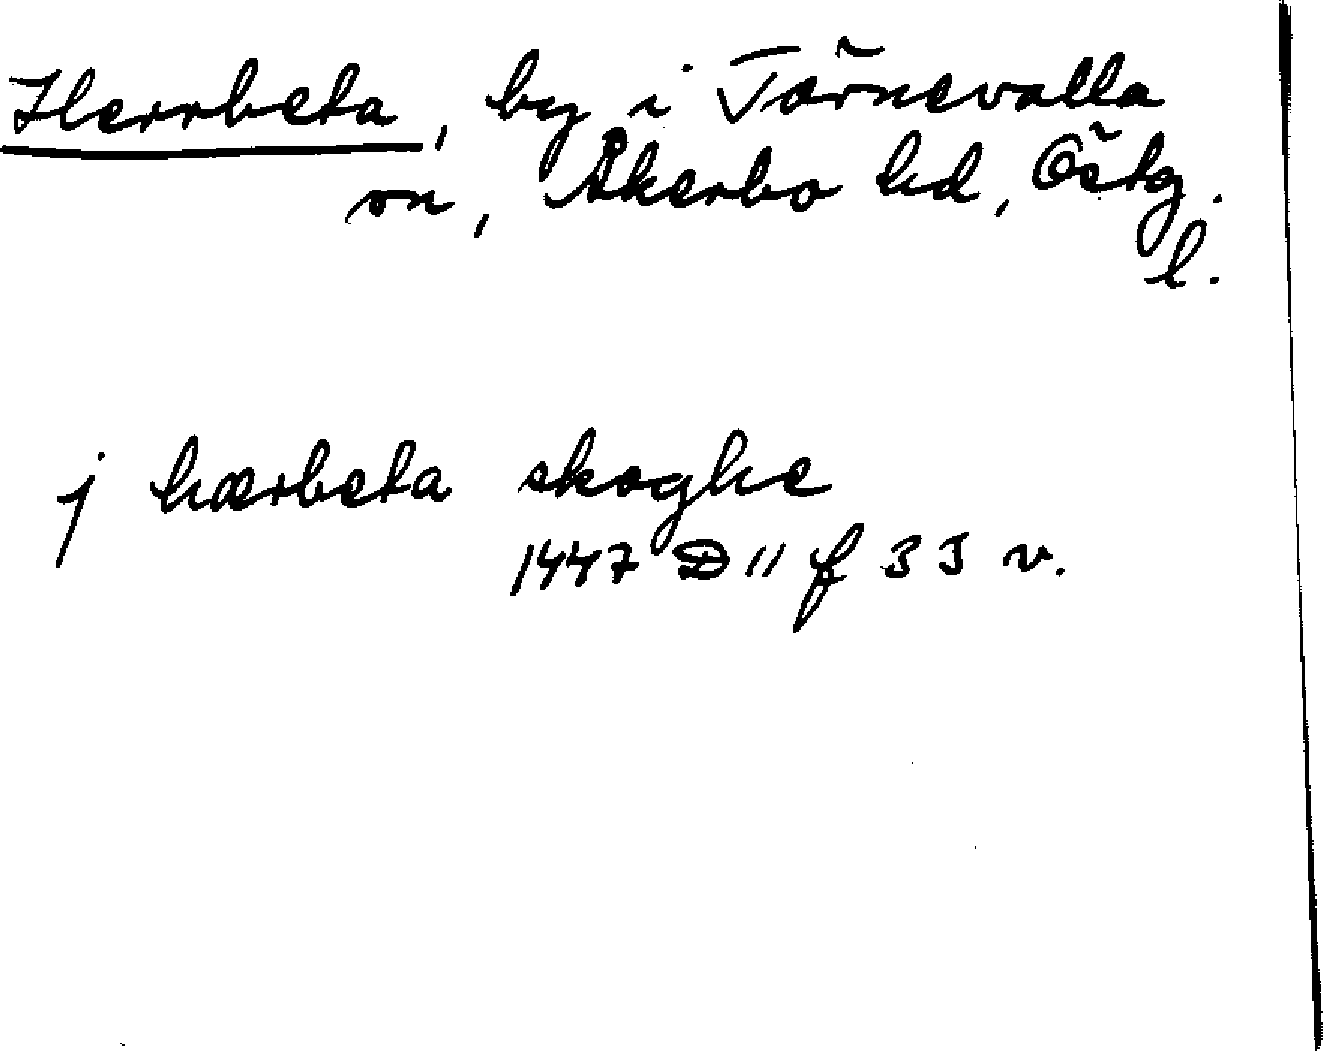 Herrbeta, by i Törnevalla
sn, Åkerbo hd, Östg.
l.
j hærbeta skoghe
1447 D 11 f 33 v.